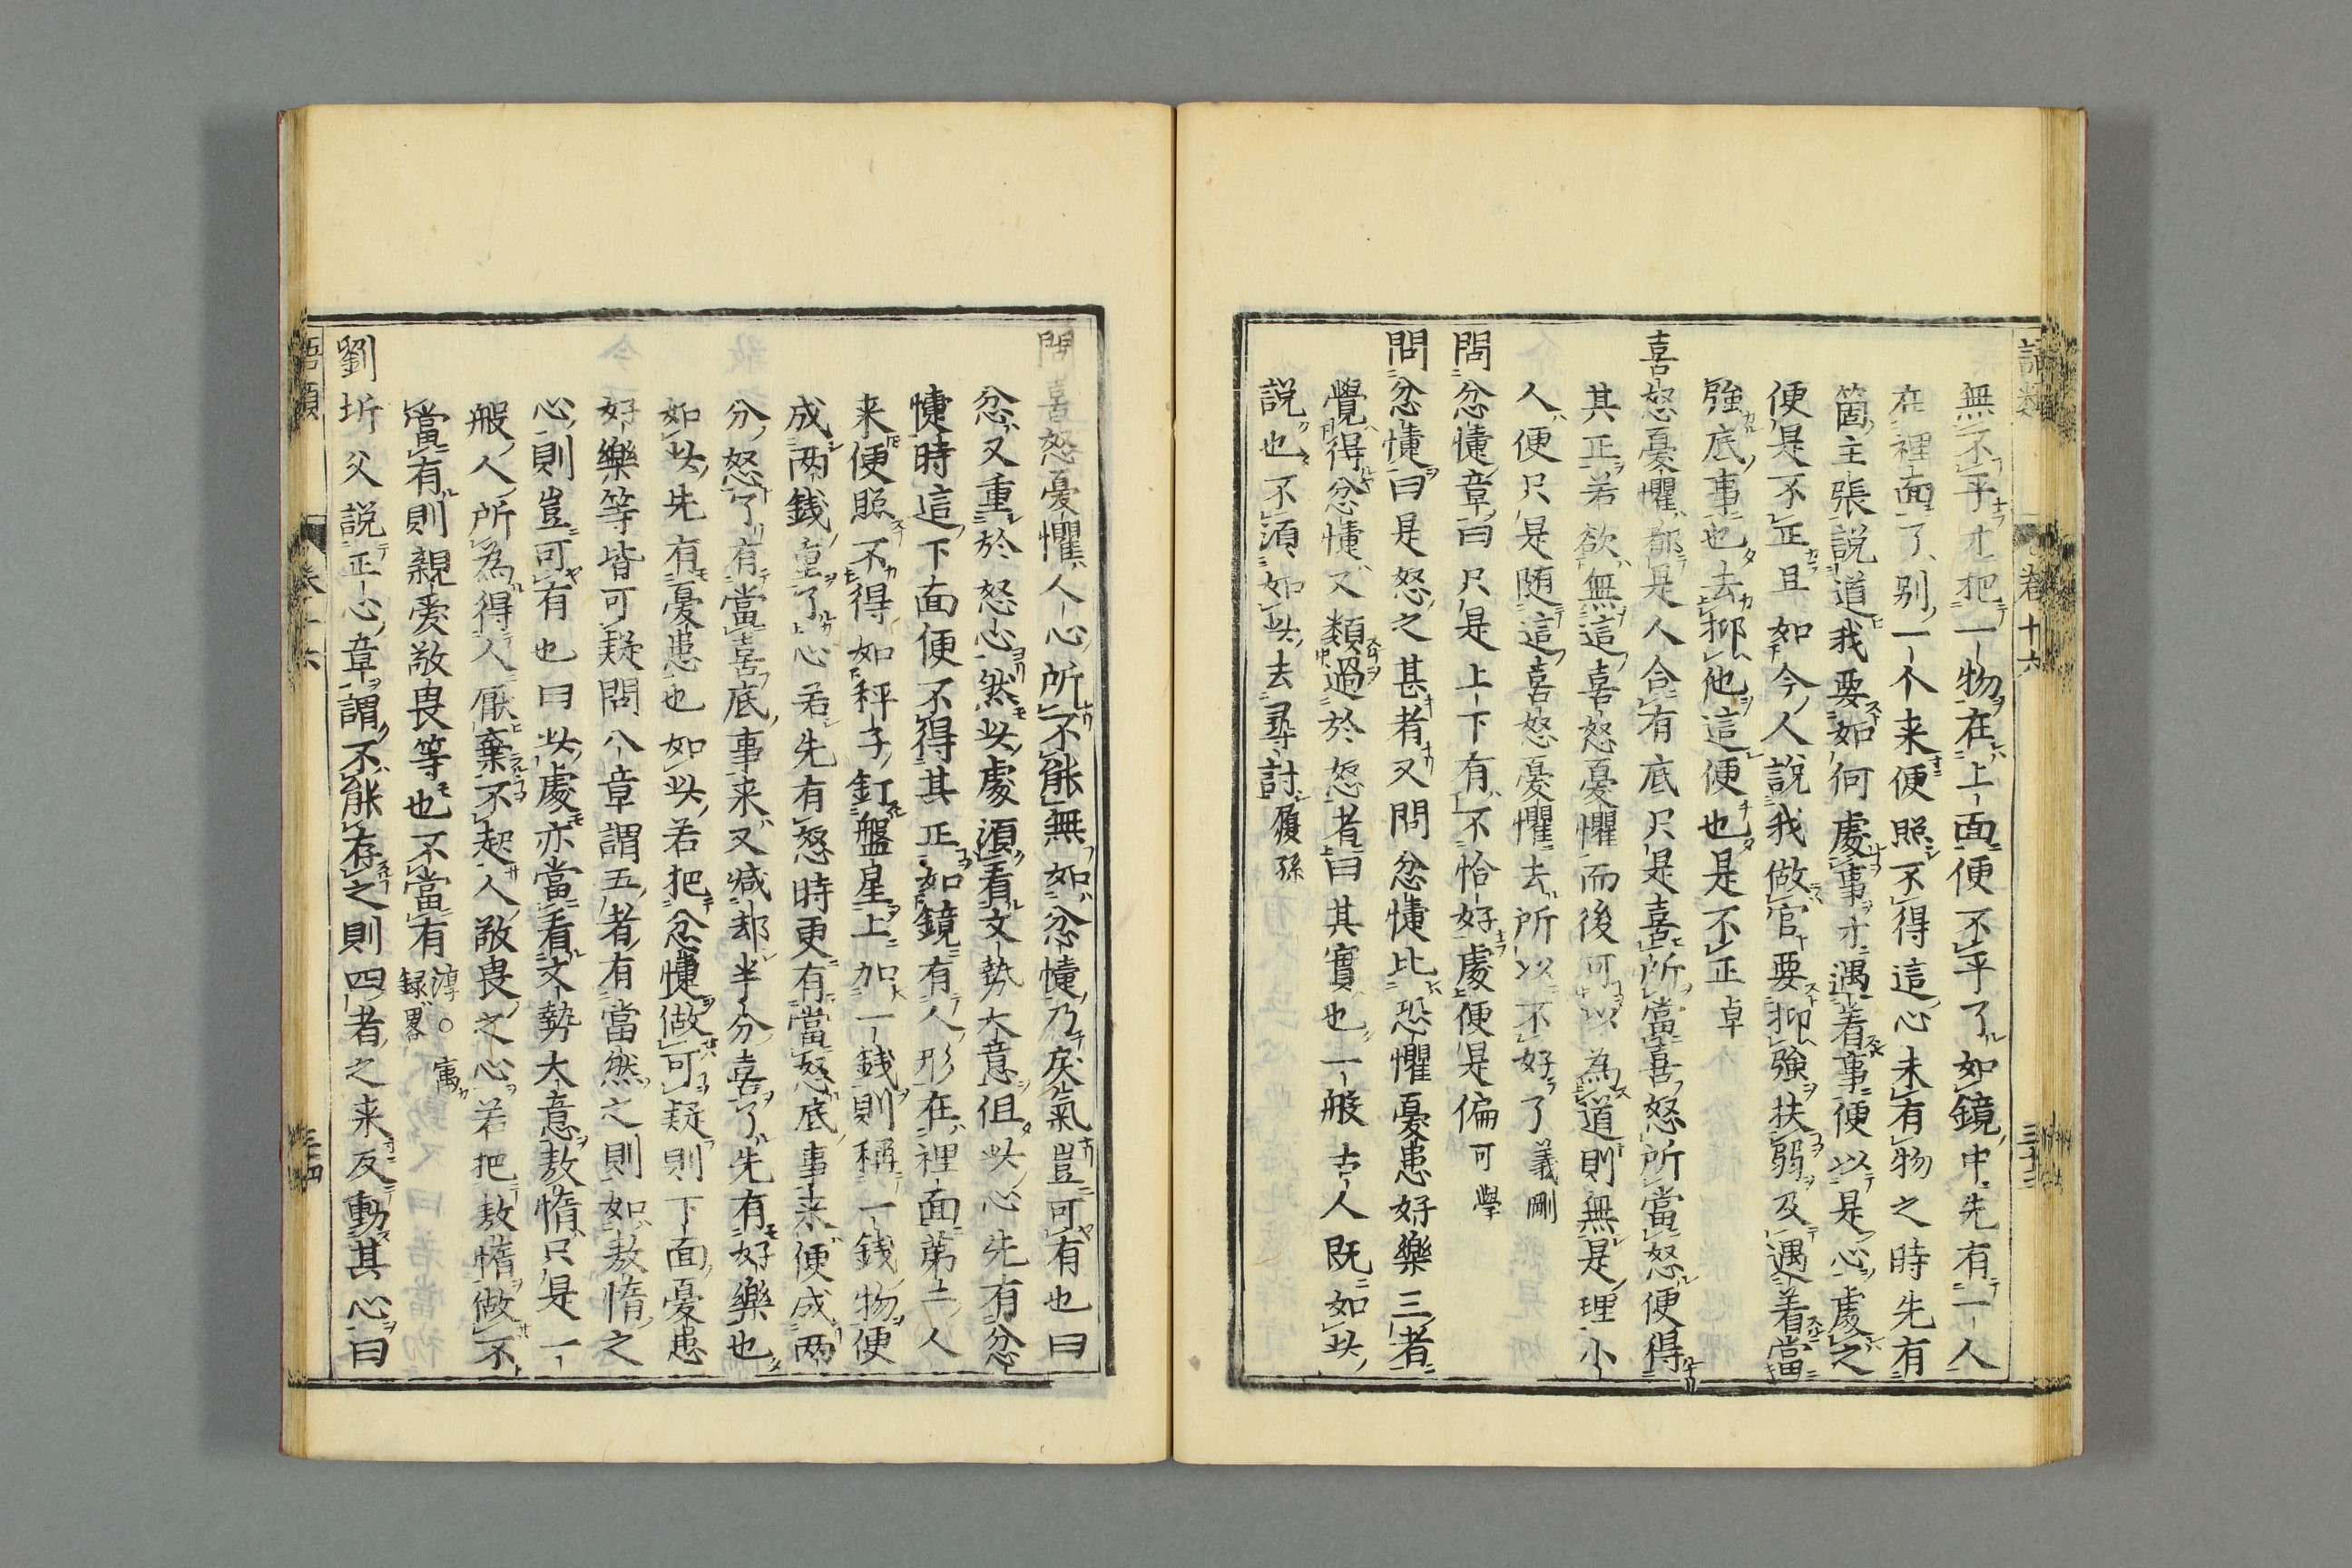 語類
卷十六
三十三
無不平才把一物在上面便不平了如鏡中先有一人
在裡面了別一个来便照不得這心未有物之時先有
箇主張説道我要如何處事才遇着事便以是心處之
便是不正且如今人説我做官要抑強扶弱及遇着當
強底事也去抑他這便也是不正 卓
喜怒憂懼都是人合有底只是喜所當喜怒所當怒便得
其正若欲無這喜怒憂懼而後可以為道則無是理小
人便只是随這喜怒憂懼去所以不好了 義剛
問忿懥章曰只是上下有不恰好處便是偏 可學
問忿懥曰是怒之甚者又問忿懥比恐懼憂患好樂三者
覺得忿懥又類過於怒者曰其實也一般古人既如此
説也不須如此去尋討 履孫
問喜怒憂懼人心所不能無如忿懥乃戾氣豈可有也曰
忿又重於怒心然此處須看文勢大意但此心先有忿
懥時這下面便不得其正如鏡有人形在裡面第二人
来便照不得如秤子釘盤星上加一錢則稱一錢物便
成兩錢重了心若先有怒時更有當怒底事来便成兩
分怒了有當喜底事来又減却半分喜了先有好樂也
如此先有憂患也如此若把忿懥做可疑則下面憂患
好樂等皆可疑問八章謂五者有當然之則如敖惰之
心則豈可有也曰此處亦當看文勢大意敖惰只是一
般人所為得人厭棄不起人敬畏之心若把敖惰做不
當有則親愛敬畏等也不當有 淳○寓
録畧
劉圻父説正心章謂不能存之則四者之来反動其心曰
語類
卷十六
三十四